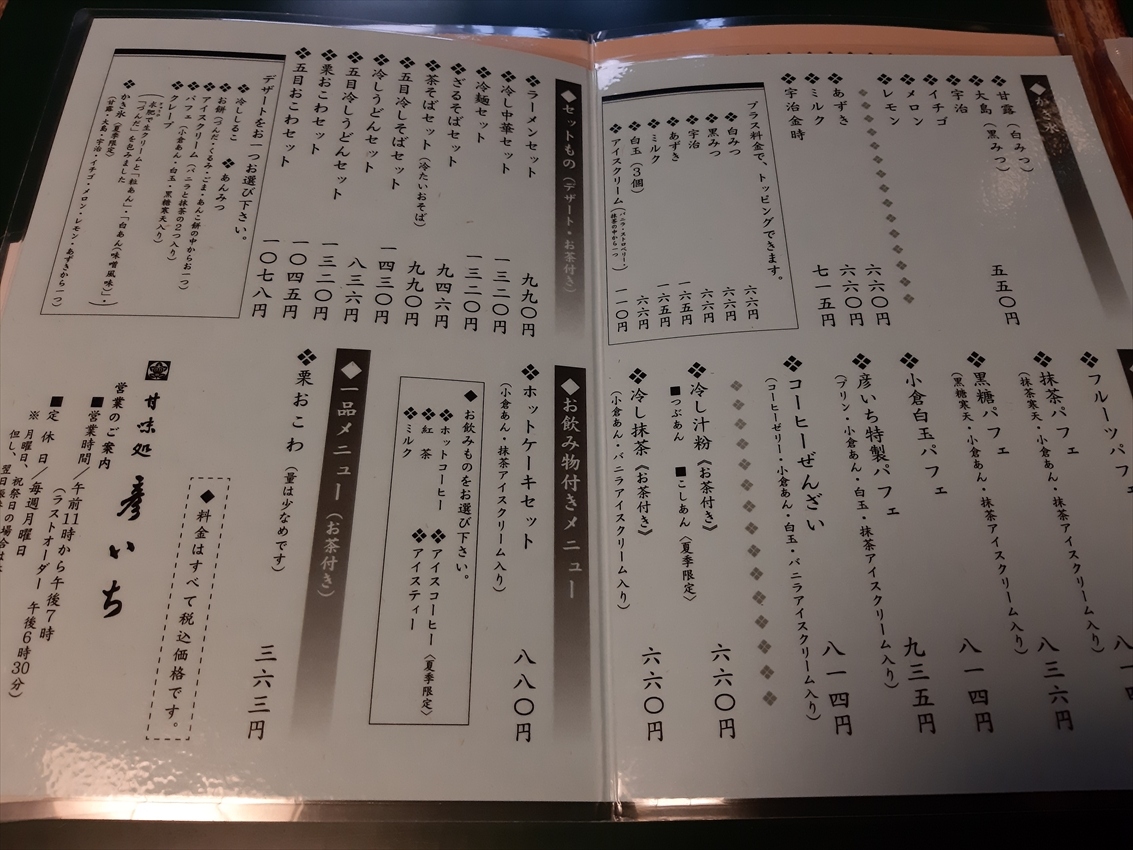 ◆かき氷
❖甘露(白みつ)
❖大島(黒みつ)
❖宇治
❖イチゴ
❖メロン
❖レモン
五五〇円
❖あずき 六六〇円
❖ミルク 六六〇円
❖宇治金時 七一五円
プラス料金で、トッピングできます。
❖白みつ 六六円
❖黒みつ 六六円
❖宇治 六六円
❖あずき 一六五円
❖ミルク 一六五円
❖白玉(3個) 六六円
❖アイスクリーム(バニラ・ストロベリー・抹茶の中から一つ) 一一〇円
❖フルーツパフェ
❖抹茶パフェ 八三六円
(抹茶寒天・小倉あん・抹茶アイスクリーム入り)
❖黒糖パフェ 八一四円
(黒糖寒天・小倉あん・抹茶アイスクリーム入り)
❖小倉白玉パフェ 九三五円
❖彦いち特製パフェ
(プリン・小倉あん・白玉・抹茶アイスクリーム入り)
❖コーヒーぜんざい 八一四円
(コーヒーゼリー・小倉あん・白玉・バニラアイスクリーム入り)
❖冷し汁粉《お茶付き》 六六〇円
■つぶあん ■こしあん〈夏季限定〉
❖冷し抹茶《お茶付き》 六六〇円
(小倉あん・バニラアイスクリーム入り)
◆セットもの(デザート・お茶付き)
❖ラーメンセット 九九〇円
❖冷し中華セット 一三二〇円
❖冷麺セット 一三二〇円
❖ざるそばセット 九四六円
❖茶そばセット(冷たいおそば) 九九〇円
❖五目冷しそばセット 一四三〇円
❖冷しうどんセット 八三六円
❖五目冷しうどんセット 一三二〇円
❖栗おこわセット 一〇四五円
❖五目おこわセット 一〇七八円
デザートをお一つお選び下さい。
❖冷ししるこ ❖あんみつ
❖お餅(づんだ・くるみ・ごま・あんこ餅の中からお一つ)
❖アイスクリーム(バニラと抹茶の2つ入り)
❖パフェ(小倉あん・白玉・黒糖寒天入り)
❖クレープ
(氷肥で生クリームと「粒あん」・「白あん(味噌風味)」・
「づんだ」を包みました)
❖かき氷(夏季限定)
(甘露・大島・宇治・イチゴ・メロン・レモン・あずきから一つ)
◆お飲み物付きメニュー
❖ホットケーキセット 八八〇円
(小倉あん・抹茶アイスクリーム入り)
◆お飲みものをお選び下さい。
❖ホットコーヒー ❖アイスコーヒー〈夏季限定〉
❖紅茶 ❖アイスティー
❖ミルク
◆一品メニュー(お茶付き)
❖栗おこわ(量は少なめです) 三六三円
◆料金はすべて税込価格です。
甘味処 彦いち
営業のご案内
■営業時間/午前11時から午後7時
(ラストオーダー 午後6時30分)
■定休日/毎週月曜日
※月曜日、祝祭日の場合は